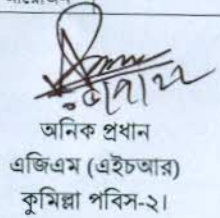 অনিক প্রধান
এজিএম (এইচআর)
কুমিল্লা পবিস-২।